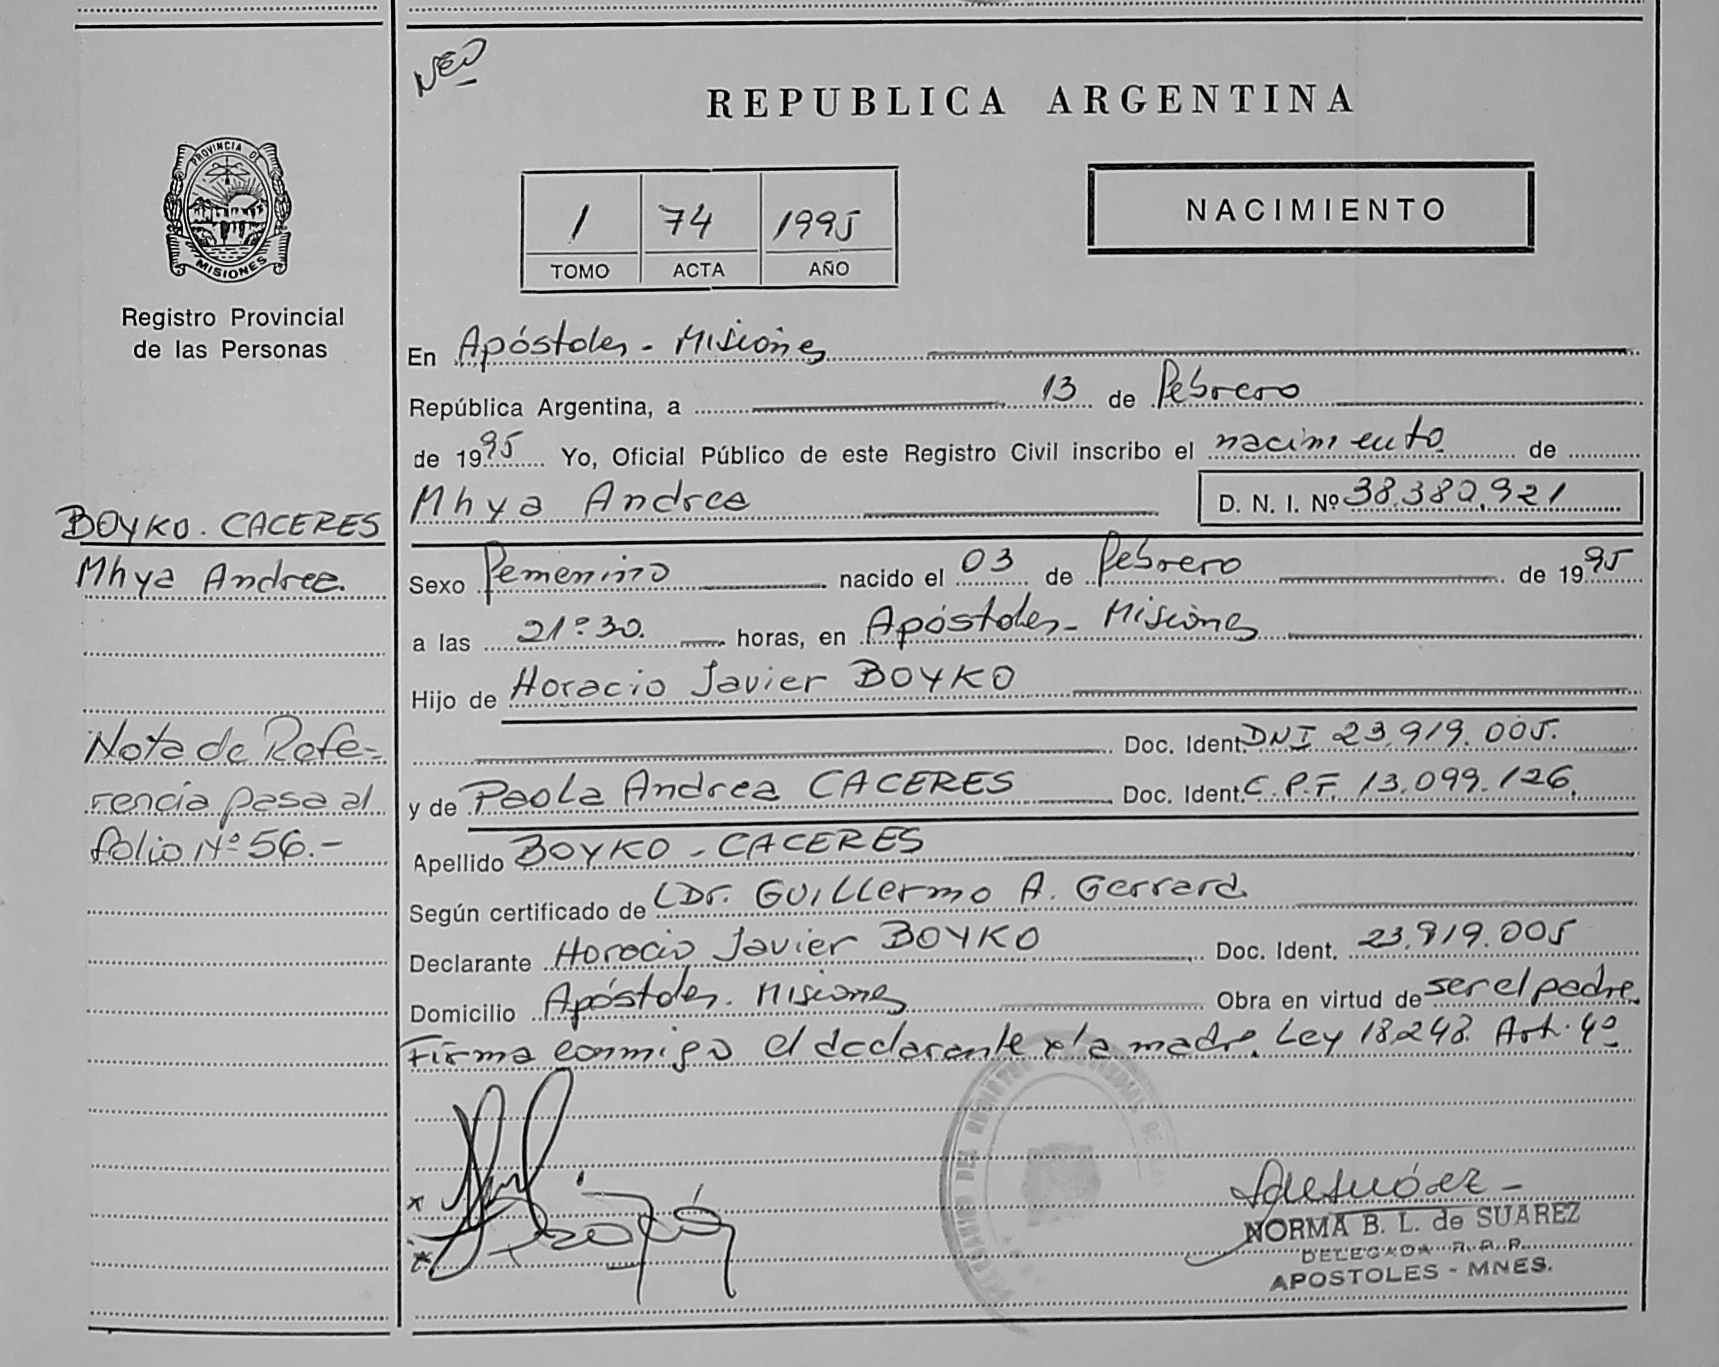 NEO
REPUBLICA ARGENTINA
PROVINCIA DE
MISIONES
Registro Provincial
de las Personas
1 74 1995
TOMO ACTA AÑO
NACIMIENTO
En Apóstoles - Misiones
República Argentina, a 13 de Febrero
de 1995 Yo, Oficial Público de este Registro Civil inscribo el nacimiento de
Mhya Andrea D. N. I. Nº 38.380.921
BOYKO - CACERES
Mhya Andrea.
Sexo Femenino nacido el 03 de Febrero de 1995
a las 21º30. horas, en Apóstoles - Misiones
Hijo de Horacio Javier BOYKO
Doc. Ident. DNI 23.919.005.
y de Paola Andrea CACERES Doc. Ident. C.P.F. 13.099.126.
Apellido BOYKO - CACERES
Nota de Refe-
rencia pasa al
folio Nº 56.-
Según certificado de Dr. Guillermo A. Gerrard.
Declarante Horacio Javier BOYKO Doc. Ident. 23.919.005
Domicilio Apóstoles. Misiones Obra en virtud de ser el padre.
Firma conmigo el declarante y la madre. Ley 18.248. Art. 4º
NORMA B. L. de SUAREZ
DELEGADA R. P. P.
APOSTOLES - MNES.